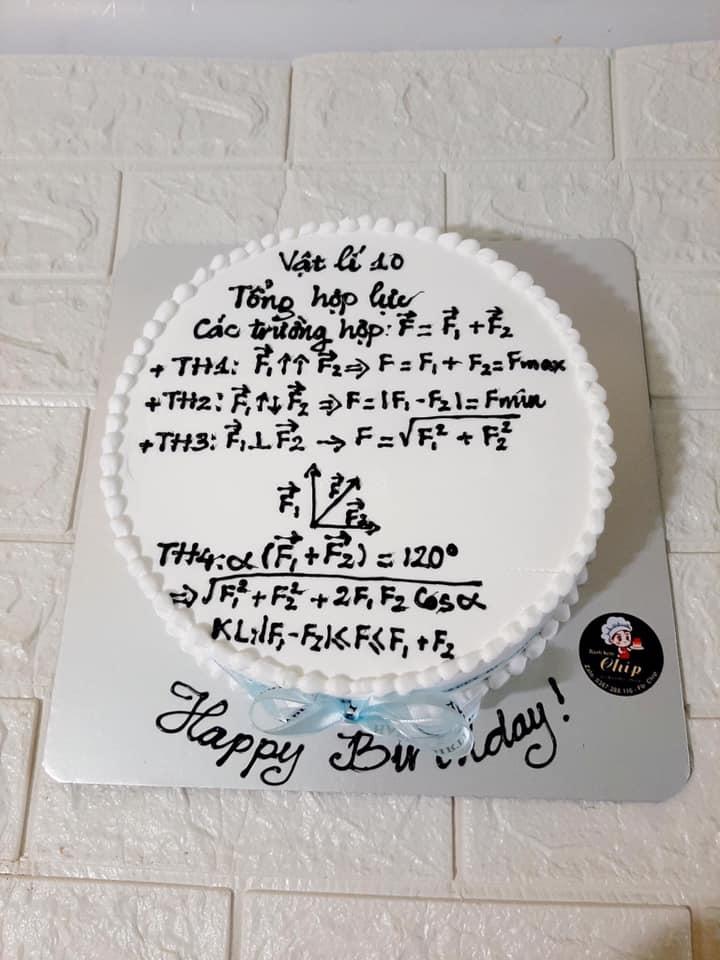 Vật lí 10
Tổng hợp lực
Các trường hợp: F⃗ = F⃗₁ + F⃗₂
+ TH1: F⃗₁↑↑ F⃗₂ ⇒ F = F₁ + F₂ = Fmax
+ TH2: F⃗₁↑↓ F⃗₂ ⇒ F = |F₁ - F₂| = Fmin
+ TH3: F⃗₁⊥F⃗₂ → F = √(F₁² + F₂²)
F⃗₁ F⃗
F⃗₂
TH4: α (F⃗₁ + F⃗₂) = 120°
⇒ √(F₁² + F₂² + 2F₁F₂ Cosα)
KL: |F₁ - F₂| ≤ F ≤ F₁ + F₂
Happy Birthday!
Chip